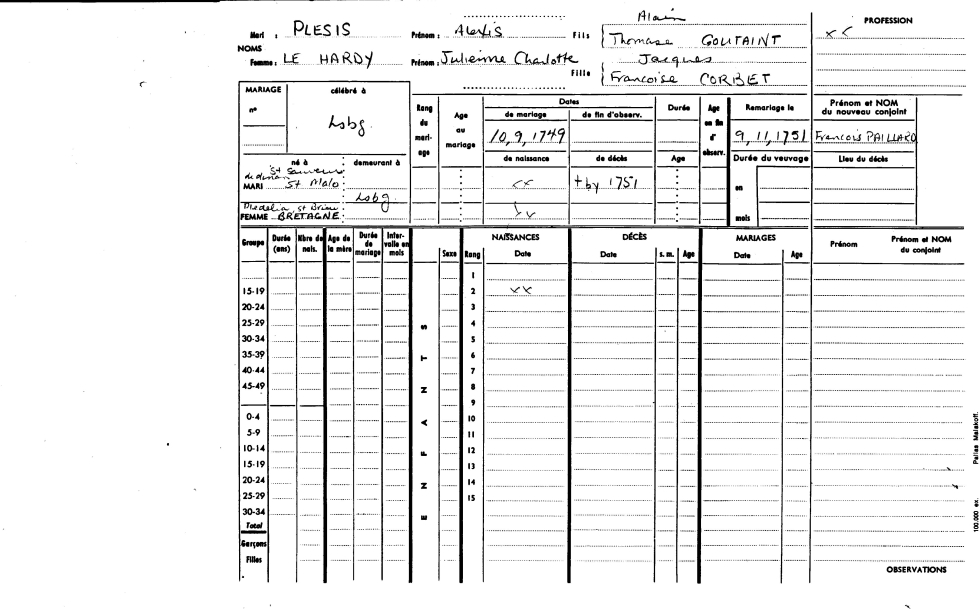 Alain
PROFESSION
Mari : PLESIS Prénom : Alexis Fils { Thomase GOUTAINT xx
NOMS
Femme : LE HARDY Prénom : Julienne Charlotte Fille { Jacques
Francoise CORBET
MARIAGE célébré à
n° Lsbg.
Rang du mariage Age au mariage Dates Durée Age en fin d'observ. Remariage le Prénom et NOM du nouveau conjoint
de mariage de fin d'observ.
10,9,1749 9,11,1751 Francois PAILLARD
né à demeurant à de naissance de décès Age Durée du veuvage Lieu du décès
St Sauveur
de dinan
MARI St Malo xx + by 1751 en
Lsbg
Pledelia, st Brieu
FEMME BRETAGNE xx mois
Groupe Durée (ans) Nbre de nais. Age de la mère Durée de mariage Intervalle en mois Sexe Rang NAISSANCES DÉCÈS MARIAGES Prénom Prénom et NOM du conjoint
Date Date s. m. Age Date Age
1
15-19 2 xx
20-24 3
25-29 4
30-34 5
35-39 6
40-44 7
45-49 8
9
0-4 10
5-9 11
10-14 12
15-19 13
20-24 14
25-29 15
30-34
Total
Garçons
Filles
ENFANTS
OBSERVATIONS
100.000 ex. Pallas Malakoff.